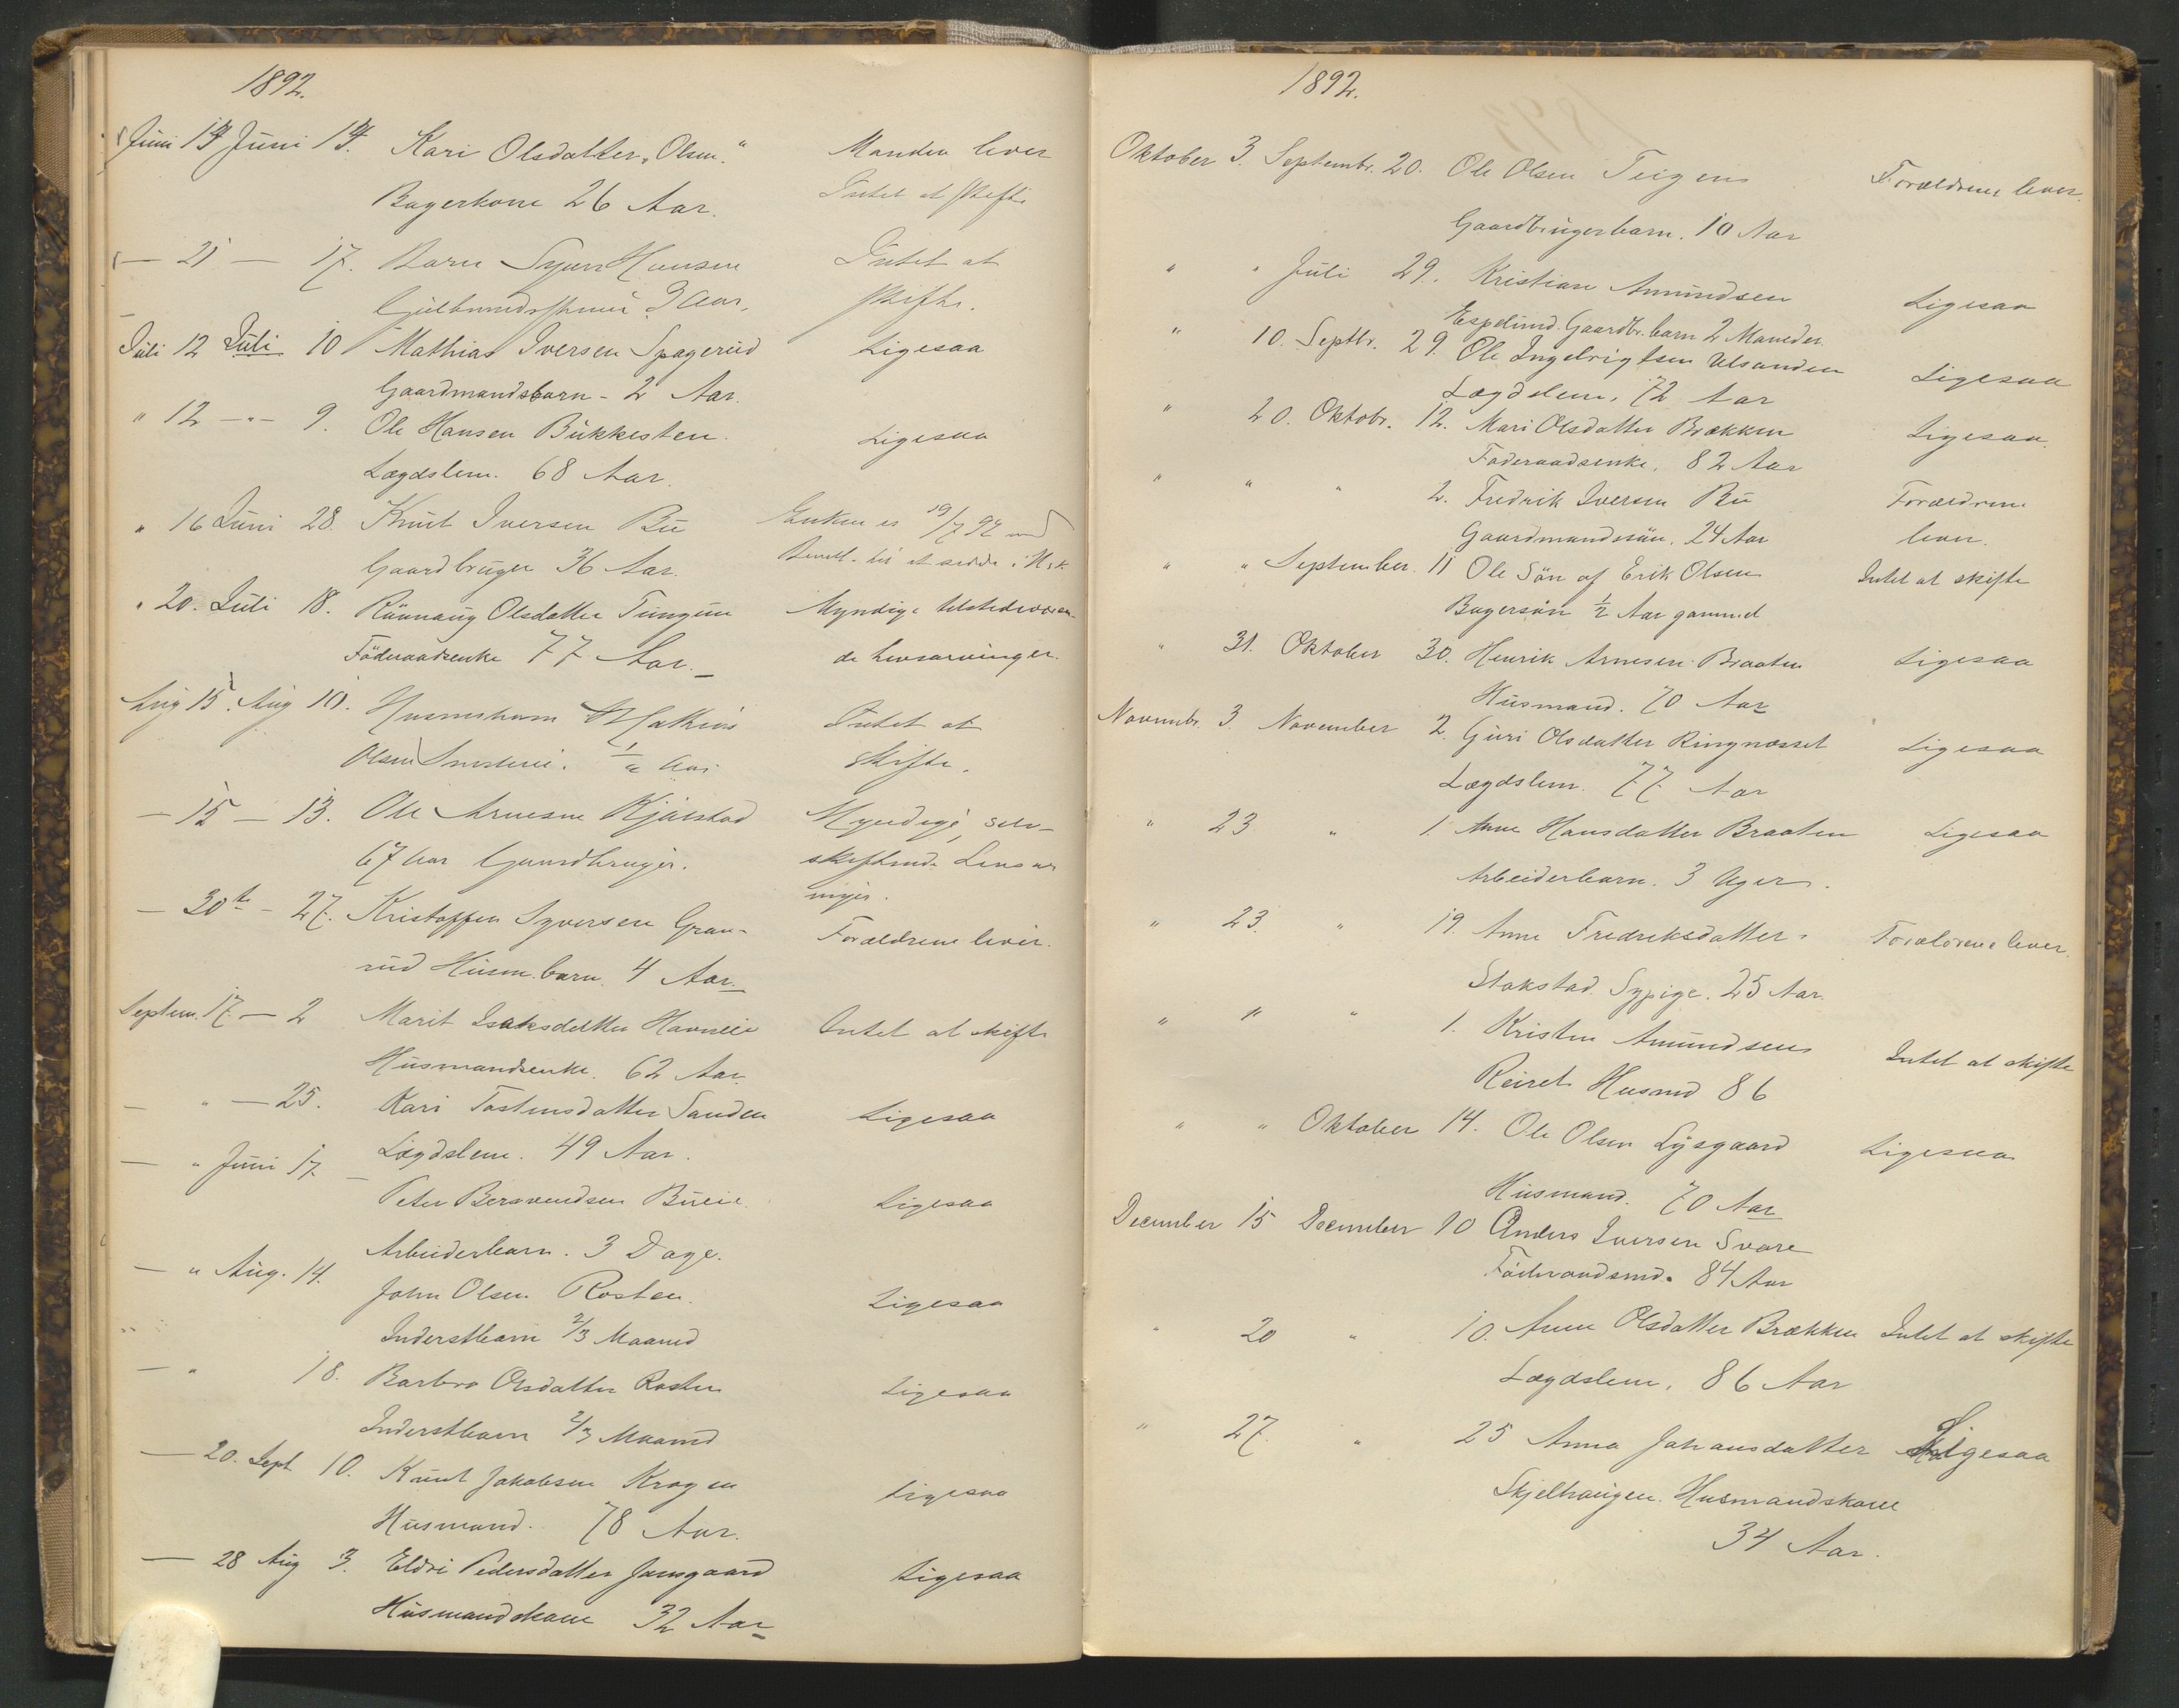 1892.
Juni 14 Juni 14. Kari Olsdatter „Olsen" Manden lever
Bagerkone 26 Aar. Intet at skifte
— 21 — 17. Barn Syver Hansen Intet at
3 Aar. skifte.
Juli 12 Juli 10 Mathias Iversen Spagerud Ligesaa
Gaardmandsbarn - 2 Aar.
" 12 —"— 9. Ole Hansen Bukkesten. Ligesaa
Lægdslem. 68 Aar.
" 16 Juni 28. Knut Iversen Bu Enken er 19/7 92 med
Gaardbruger 36 Aar. Bevill. til at sidde i
" 20. Juli 18. Rönnaug Olsdatter Tungen Myndige tilstedeværen-
Föderaadsenke 77 Aar. de livsarvinger.
Aug 15. Aug 10. Husmsbarn Mathias Intet at
Olsen ½ Aar Skifte.
— 15 — 13. Ole Arnesen Kjölstad Myndige, selv-
67 Aar Gaardbruger. skiftende Livsar
vinger.
— 30te — 27. Kristoffer Syversen Gran- Forældrene lever.
rud Husm.barn. 4 Aar.
Septem. 17. — 2 Marit Isaksdatter Havneie Intet at skifte
Husmandsenke. 62 Aar.
— " — 25. Kari Tostensdatter Sanden Ligesaa
Lægdslem. 49 Aar.
— " Juni 17 — Peter Bersvendsen Bueie. Ligesaa
Arbeiderbarn. 3 Dage.
— " Aug. 14. John Olsen Rosten. Ligesaa
Inderstbarn 2/3 Maaned
— " 18. Barbro Olsdatter Rosten Ligesaa
Inderstbarn 2/3 Maaned
— 20. Sept 10. Knut Jakobsen Krogen Ligesaa
Husmand. 78 Aar.
— 28 Aug 3. Eldri Pedersdatter Jamsgaard Ligesaa
Husmandskone 32 Aar
1892.
Oktober 3. Septembr. 20. Ole Olsen Teigen Forældrene lever.
Gaardbrugerbarn. 10 Aar
" " Juli 29. Kristian Amundsen Ligesaa
Espelund. Gaardbr.barn 2 Maneder
" 10. Septbr. 29. Ole Ingebrigtsen Ulsanden Ligesaa
Lægdslem. 72 Aar
" 20. Oktobr. 12. Mari Olsdatter Brækken Ligesaa.
Föderaadsenke. 82 Aar
" " " 2. Fredrik Iversen Bu Forældrene
Gaardmandssön. 24 Aar lever.
" " September. 11 Ole Sön af Erik Olsen Intet at skifte
Bagersön ½ Aar gammel
" 31. Oktober 30. Henrik Arnesen Braaten Ligesaa
Husmand. 70 Aar
Novembr. 3. November 2. Guri Olsdatter Ringnæsset Ligesaa
Lægdslem. 77 Aar
" 23 " 1. Anne Hansdatter Braaten Ligesaa
Arbeiderbarn. 3 Uger.
" 23. " 19. Anne Fredriksdatter Forældrene lever.
Stakstad. Sypige. 25 Aar.
" " " 1. Kristen Amundsen Intet at skifte
Reiret Husmd 86
" " Oktober 14. Ole Olsen Lysgaard Ligesaa
Husmand. 70 Aar
December 15 December 10 Anders Iversen Svare
Föderaadsmd. 84 Aar
" 20 " 10. Anne Olsdatter Brækken Intet at skifte
Lægdslem. 86 Aar
" 27. " 25 Anna Johansdatter Ligesaa
Skjelhaugen. Husmandskone
34 Aar.